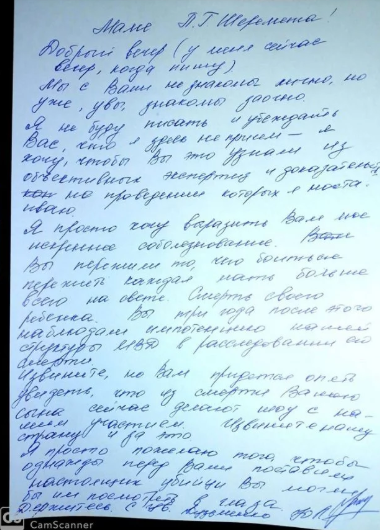 Маме П.Г Шеремета!
Добрый вечер (у меня сейчас
вечер, когда пишу)
Мы с Вами не знакомы лично, но
уже, увы, знакомы заочно.
Я не буду писать и убеждать
Вас, что я здесь не причем – я
хочу, чтобы Вы это узнали из
объективных экспертиз и доказательств
на проведении которых я наста-
иваю.
Я просто хочу выразить Вам мое
искреннее соболезнование.
Вы пережили то, чего боится
пережить каждая мать больше
всего на свете. Смерть своего
ребенка. Вы три года после этого
наблюдали импотенцию нашей
структуры МВД в расследовании его
смерти.
Извините, но Вам придется опять
увидеть, что из смерти Вашего
сына сейчас делают шоу с на-
шим участием. Извините нашу
страну и за это
Я просто пожелаю того, чтобы
однажды перед Вами поставили
настоящих убийц и Вы могли
бы им посмотреть в глаза
Держитесь. С ув. Кузьменко
CamScanner